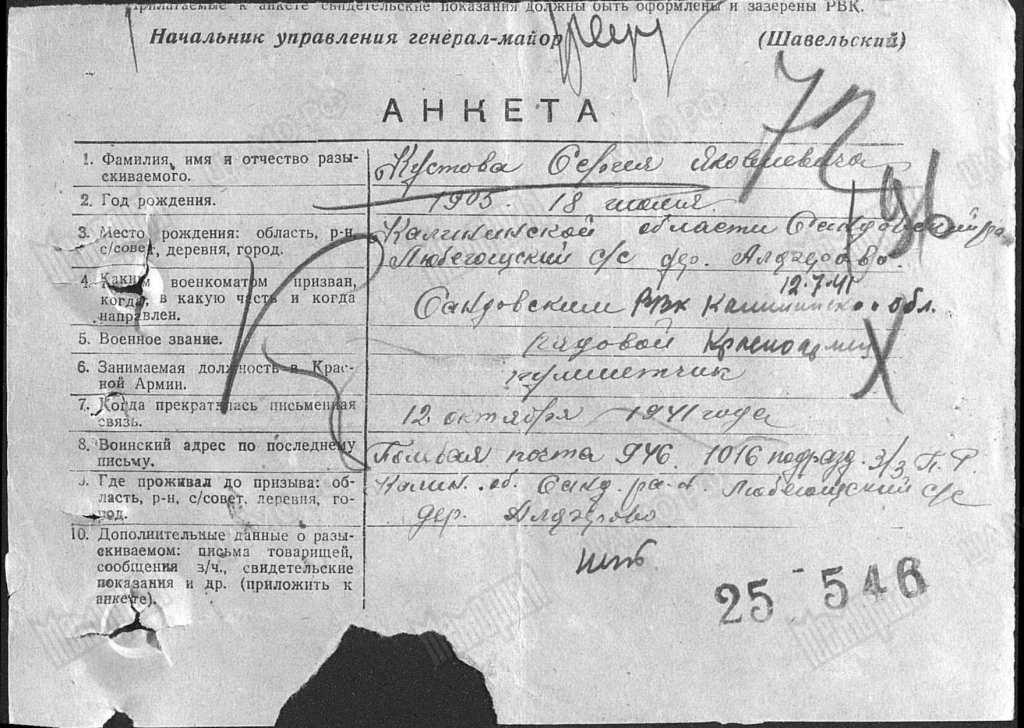 Прилагаемые к анкете свидетельские показания должны быть оформлены и заверены РВК.
Начальник управления генерал-майор (Шавельский)
АНКЕТА
72
1. Фамилия, имя и отчество разыскиваемого. Кустова Сергея Яковлевича
2. Год рождения. 1905. 18 июля
3. Место рождения: область, р-н, с/совет, деревня, город. Калининской области Сандовский р-н
Любегощский с/с дер.
4. Каким военкоматом призван, когда, в какую часть и когда направлен. 12.7.41
Сандовским РВК Калининской обл.
5. Военное звание. Рядовой Красноармеец
6. Занимаемая должность в Красной Армии. пулиметчик
7. Когда прекратилась письменная связь. 12 октября 1941 года
8. Воинский адрес по последнему письму. Полевая почта 946. 1016 подразд.
9. Где проживал до призыва: область, р-н, с/совет, деревня, город. Калин. об. Санд. ра-н. Любегощский с/с
дер.
10. Дополнительные данные о разыскиваемом: письма товарищей, сообщения з/ч., свидетельские показания и др. (приложить к анкете).
25 546